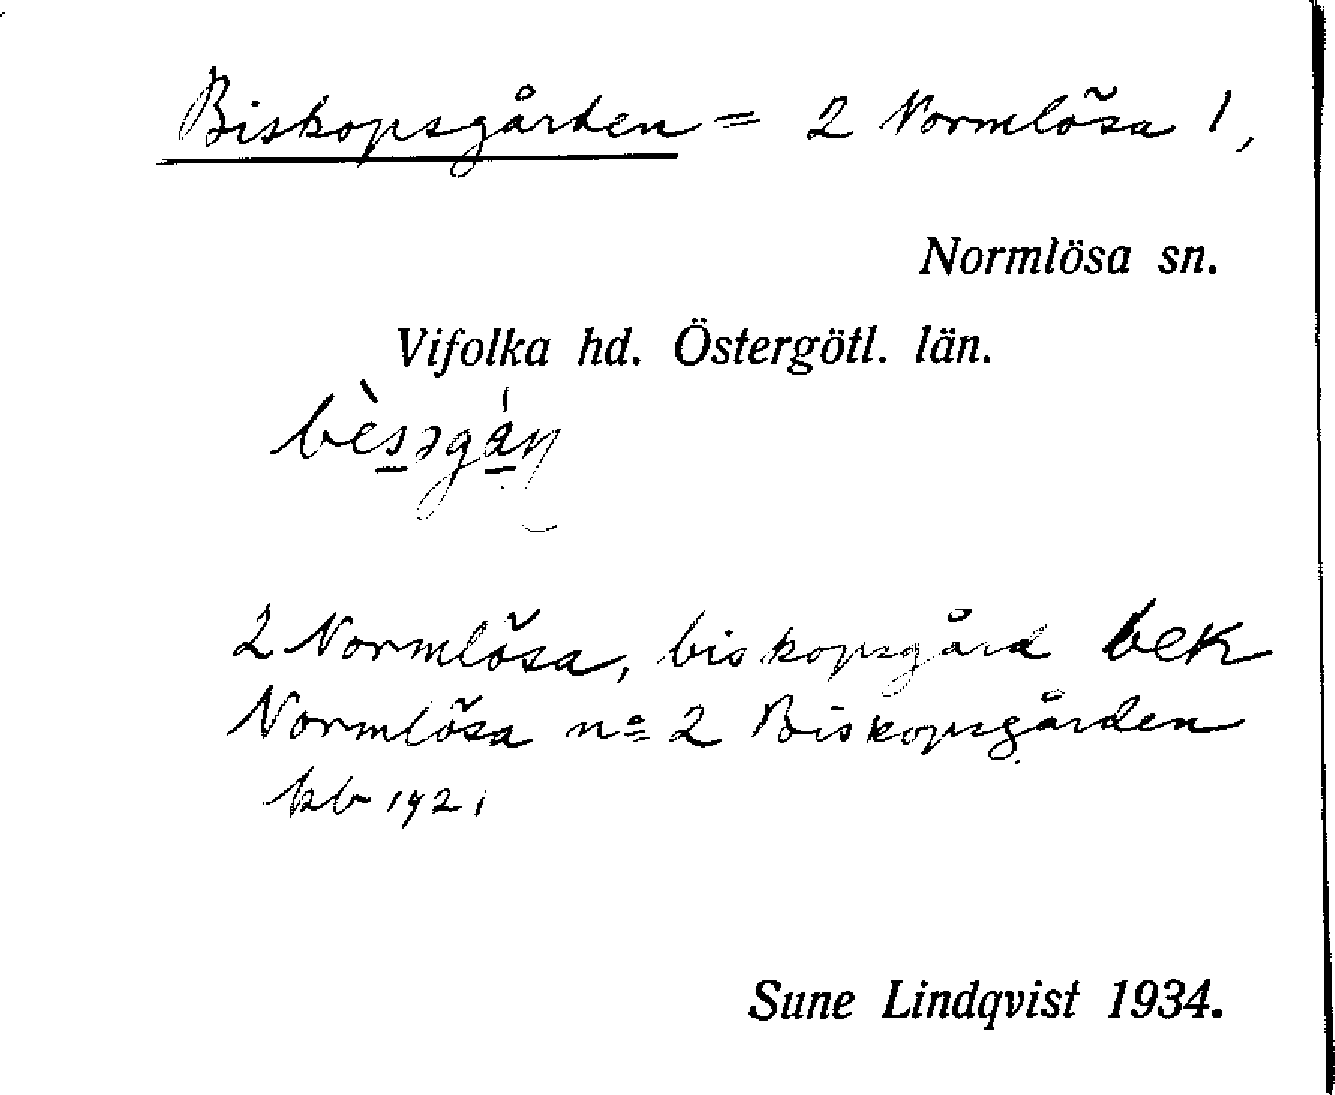 Biskopsgården = 2 Normlösa 1,
Normlösa sn.
Vifolka hd. Östergötl. län.
2 Normlösa, biskopsgård bek
Normlösa nº 2 Biskopsgården
kb 1921
Sune Lindqvist 1934.